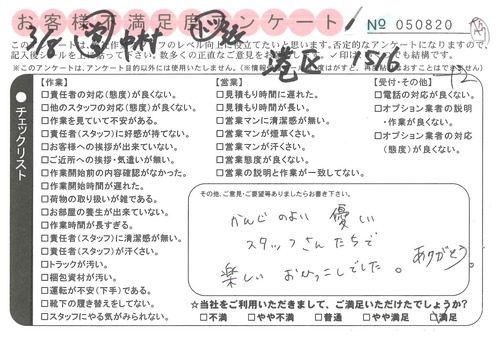 お客様不満足度アンケート
№ 050820
3/8 営 中村
港区 15/6
このアンケートは、
記入後シールを上に貼って下さい。数多くの正直なご意見を
※このアンケートは、アンケート目的以外には使用いたしません。
チェックリスト
【作業】
□責任者の対応(態度)が良くない。
□他のスタッフの対応(態度)が良くない。
□作業を見ていて不安がある。
□責任者(スタッフ)に好感が持てない。
□お客様への挨拶が出来ていない。
□ご近所への挨拶・気遣いが無い。
□作業開始前の内容確認がなかった。
□作業開始時間が遅れた。
□荷物の取り扱いが雑である。
□お部屋の養生が出来ていない。
□作業時間が長すぎる。
□責任者(スタッフ)に清潔感が無い。
□責任者(スタッフ)が汗くさい。
□トラックが汚い。
□梱包資材が汚い。
□運転が不安(下手)である。
□靴下の履き替えをしてない。
□スタッフにやる気が感じられない。
【営業】
□見積もり時間に遅れた。
□見積もり時間が長い。
□営業マンに清潔感が無い。
□営業マンが煙草くさい。
□営業マンが汗くさい。
□営業態度が良くない。
□営業の説明と作業が一致してない。
【受付・その他】
□電話の対応が良くない。
□オプション業者の説明
・作業が良くない。
□オプション業者の対応
(態度)が良くない。
その他、ご意見・ご要望等ありましたらお書き下さい。
かんじのよい 優しい
スタッフさんたちで
楽しい おひっこしでした。ありがとう。
☆当社をご利用いただきまして、ご満足いただけたでしょうか?
□不満 □やや不満 □普通 □やや満足 □満足